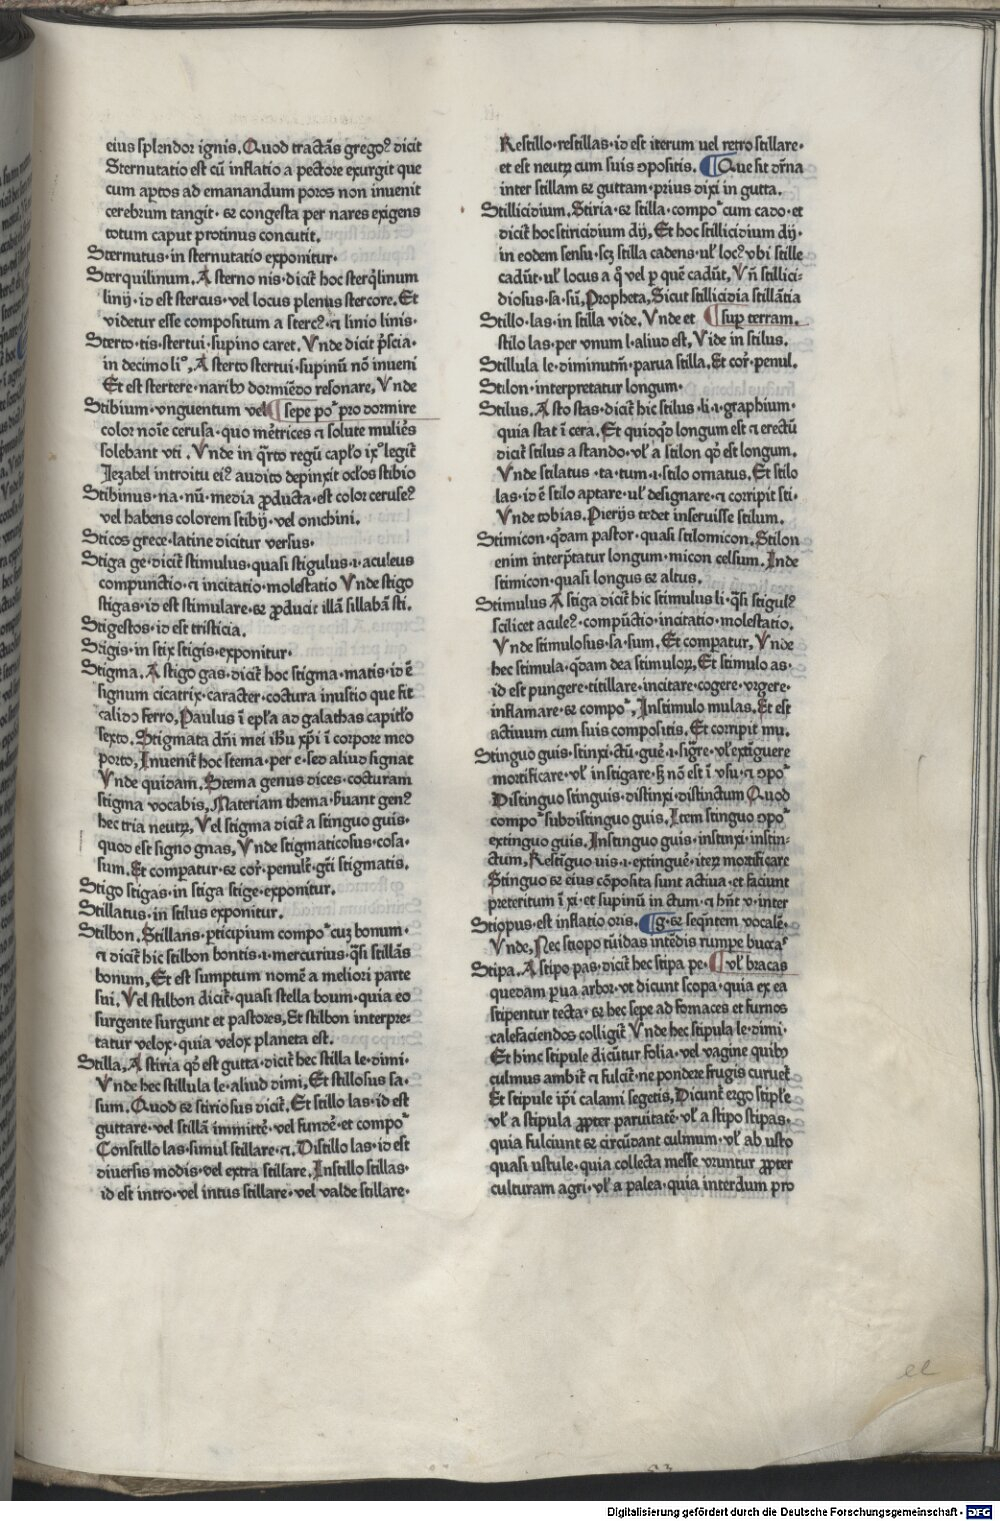 eius splendor ignis. Quod tractãs grego⁊ dicit
Sternutatio est cũ inflatio a pectore exurgit que
cum aptos ad emanandum poros non inuenit
cerebrum tangit· ⁊ congesta per nares exigens
totum caput protinus concutit.
Sternutus·in sternutatio exponitur·
Sterquilinum. A sterno nis·dicit̃ hoc sterq̃linum
linij·id est stercus·vel locus plenus stercore. Et
videtur esse compositum a sterc⁊·⁊ linio linis·
Sterto·tis·stertui·supino caret. Vnde dicit p̃scia·
in decimo li°, A sterto stertui·supinũ nõ inueni
Et est stertere·naribꝫ dormiẽdo resonare, Vnde
Stibium·vnguentum vel ¶ sepe po͛ pro dormire
color noĩe cerusa·quo mẽtrices ⁊ solute muliẽs
solebant vti. Vnde in q̃rto regũ capło ix° legit̃
Iezabel introitu ei⁊ audito depinxit ocłos stibio
Stibinus·na·nũ·media ꝓducta·est color ceruse⁊
vel habens colorem stibij·vel onichini.
Sticos grece·latine dicitur versus·
Stiga ge·dicit̃ stimulus·quasi stigulus·i·aculeus
compunctio·⁊ incitatio·molestatio Vnde stigo
stigas·id est stimulare·⁊ ꝓducit illã sillabã sti.
Stigestos·id est tristicia.
Stigis·in stix stigis·exponitur·
Stigma. A stigo gas·dicit̃ hoc stigma·matis·id ẽ
signum cicatrix·caracter·coctura inustio que fit
calido ferro, Paulus ĩ epła ad galathas capitło
sexto. Stigmata dñi mei ihũ xp̃i ĩ corpore meo
porto, Inuenit̃ hoc stema·per e·sed aliud signat
Vnde quidam. Stema genus dices·cocturam
stigma vocabis, Materiam thema·ẞuant gen⁊
hec tria neutꝝ, Vel stigma dicit̃ a stinguo guis·
quod est signo gnas, Vnde stigmaticosus·cosa·
sum. Et comparatur·⁊ cor̃·penult̃·gt̃i stigmatis.
Stigo stigas·in stiga stige·exponitur.
Stillatus·in stilus exponitur.
Stilbon. Stillans·p̱ticipium compo͛ cuꝫ bonum·
⁊ dicit̃ hic stilbon bontis·i·mercurius·q̃si stillãs
bonum, Et est sumptum nomẽ a meliori parte
sui. Vel stilbon dicit̃·quasi stella boum·quia eo
surgente surgunt et pastores, Et stilbon interpre-
tatur velox·quia velox planeta est.
Stilla, A stiria qđ est gutta·dicit̃ hec stilla le·dimi·
Vnde hec stillula le·aliud dimi, Et stillosus sa·
sum. Quod ⁊ stiriosus dicit̃. Et stillo las·id est
guttare·vel stillã immittẽ·vel fundẽ·et compo͛
Constillo las·simul stillare·⁊. Distillo las·id est
diuersis modis·vel extra stillare. Instillo stillas·
id est intro·vel intus stillare·vel valde stillare·
Restillo·restillas·id est iterum uel retro stillare·
et est neutꝝ cum suis ɔpositis. ¶ Que sit dr̃na
inter stillam ⁊ guttam·prius dixi in gutta.
Stillicidium. Stiria·⁊ stilla·compo͛ cum cado·et
dicit̃ hoc stiricidium dij, Et hoc stillicidium dij·
in eodem sensu·scꝫ stilla cadens·uł loc⁊ vbi stille
cadũt·uł locus a q̃ vel p̱ quẽ cadũt, Vñ stillici-
diosus·sa·sũ, Propheta, Sicut stillicidia stillãtia
Stillo·las·in stilla vide. Vnde et ¶ sup̱ terram.
stilo las·per vnum l·aliud est, Vide in stilus.
Stillula le·diminutm̃·parua stilla. Et cor̃·penul.
Stilon·interpretatur longum·
Stilus. A sto stas·dicit̃ hic stilus·li·i·graphium·
quia stat ĩ cera. Et quidq̃d longum est ⁊ erectũ
dicit̃ stilus a stando·vł a stilon qđ est longum.
Vnde stilatus·ta·tum·i·stilo ornatus. Et stilo
las·id ẽ stilo aptare·uł designare·⁊ corripit sti·
Vnde tobias. Pierijs tedet inseruisse stilum.
Stimicon·q̃dam pastor·quasi stilomicon. Stilon
enim interp̃tatur longum·micon celsum. Inde
stimicon·quasi longus ⁊ altus.
Stimulus A stiga dicit̃ hic stimulus li·q̃si stigul⁊
scilicet acule⁊·compũctio·incitatio·molestatio.
Vnde stimulosus·sa·sum. Et comparatur, Vnde
hec stimula·q̃dam dea stimuloꝝ, Et stimulo as·
id est pungere·titillare·incitare·cogere·vrgere·
inflamare·⁊ compo͛, Instimulo mulas. Et est
actiuum cum suis compositis. Et corripit mu.
Stinguo guis·stinxi·ctũ·guẽ·i·sig̃re·vł extĩguere
mortificare·vł instigare·ẞ nõ est ĩ vsu·⁊ ɔpo͛
Distinguo stinguis·distinxi·distinctum Quod
compo͛ subdistinguo guis. Item stinguo ɔpo͛
extinguo guis. Instinguo guis·instinxi·instin-
ctum, Restĩguo uis·i·extinguẽ·iteꝝ mortificare
Stinguo ⁊ eius cõposita sunt actiua·et faciunt
preteritum ĩ xi·et supinũ in ctum·⁊ hñt v·inter
Stiopus·est inflatio oris. ¶ g·⁊ seq̃ntem vocalẽ.
Vnde, Nec stiopo tũidas intẽdis rumpe bucca͛
Stipa. A stipo pas·dicit̃ hec stipa pe· ¶ vł bracas
quedam p̱ua arbor·vt dicunt scopa·quia ex ea
stipentur tecta·⁊ hec sepe ad fornaces et furnos
calefaciendos colligit̃ Vnde hec stipula le·dimi·
Et hinc stipule dicũtur folia·vel vagine quibꝫ
culmus ambit̃ ⁊ fulcit̃·ne pondere frugis curuet̃
Et stipule ip̃i calami segetis, Dicunt̃ ergo stipłe
vł a stipula ꝓpter paruitatẽ·vł a stipo stipas·
quia fulciunt ⁊ circũdant culmum·vł ab usto
quasi ustule·quia collecta messe vruntur ꝓpter
culturam agri·vł a palea·quia interdum pro
el
Digitalisierung gefördert durch die Deutsche Forschungsgemeinschaft · DFG